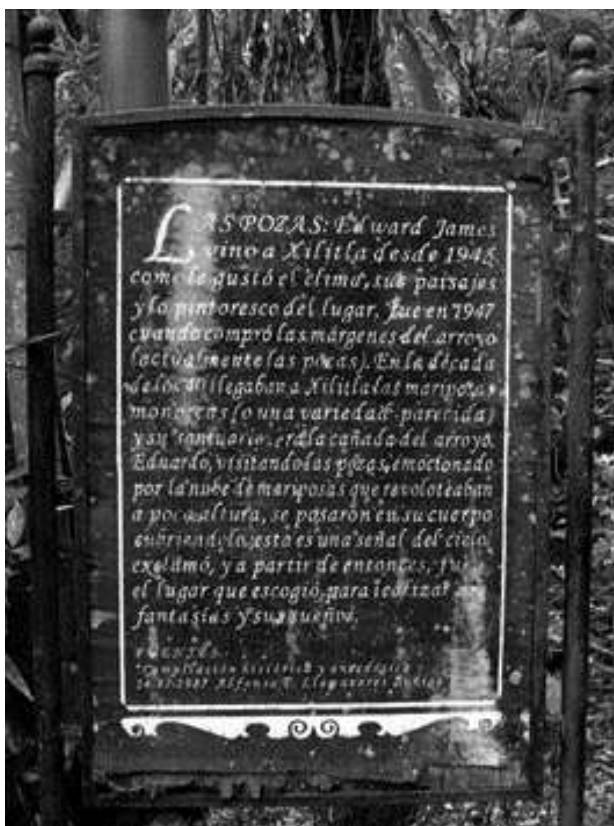 LAS POZAS: Edward James
vino a Xilitla desde 194
como le gustó el clima, sus paisajes
y lo pintoresco del lugar. Fue en 1947
cuando compró las márgenes del arroyo
(actualmente las pozas). En la década
de los llegaban a Xilitla las mariposas
monarcas (o una variedad parecida)
y su santuario era la cañada del arroyo.
Eduardo, visitando las pozas, emocionado
por la nube de mariposas que revoloteaban
a poca altura, se posaron en su cuerpo
cubriendolo, esta es una señal del cielo,
exclamó, y a partir de entonces, fue
el lugar que escogió, para
fantasías y sus sueños.
FUENTES.
Compilación histórica y anecdótica
Alfonso